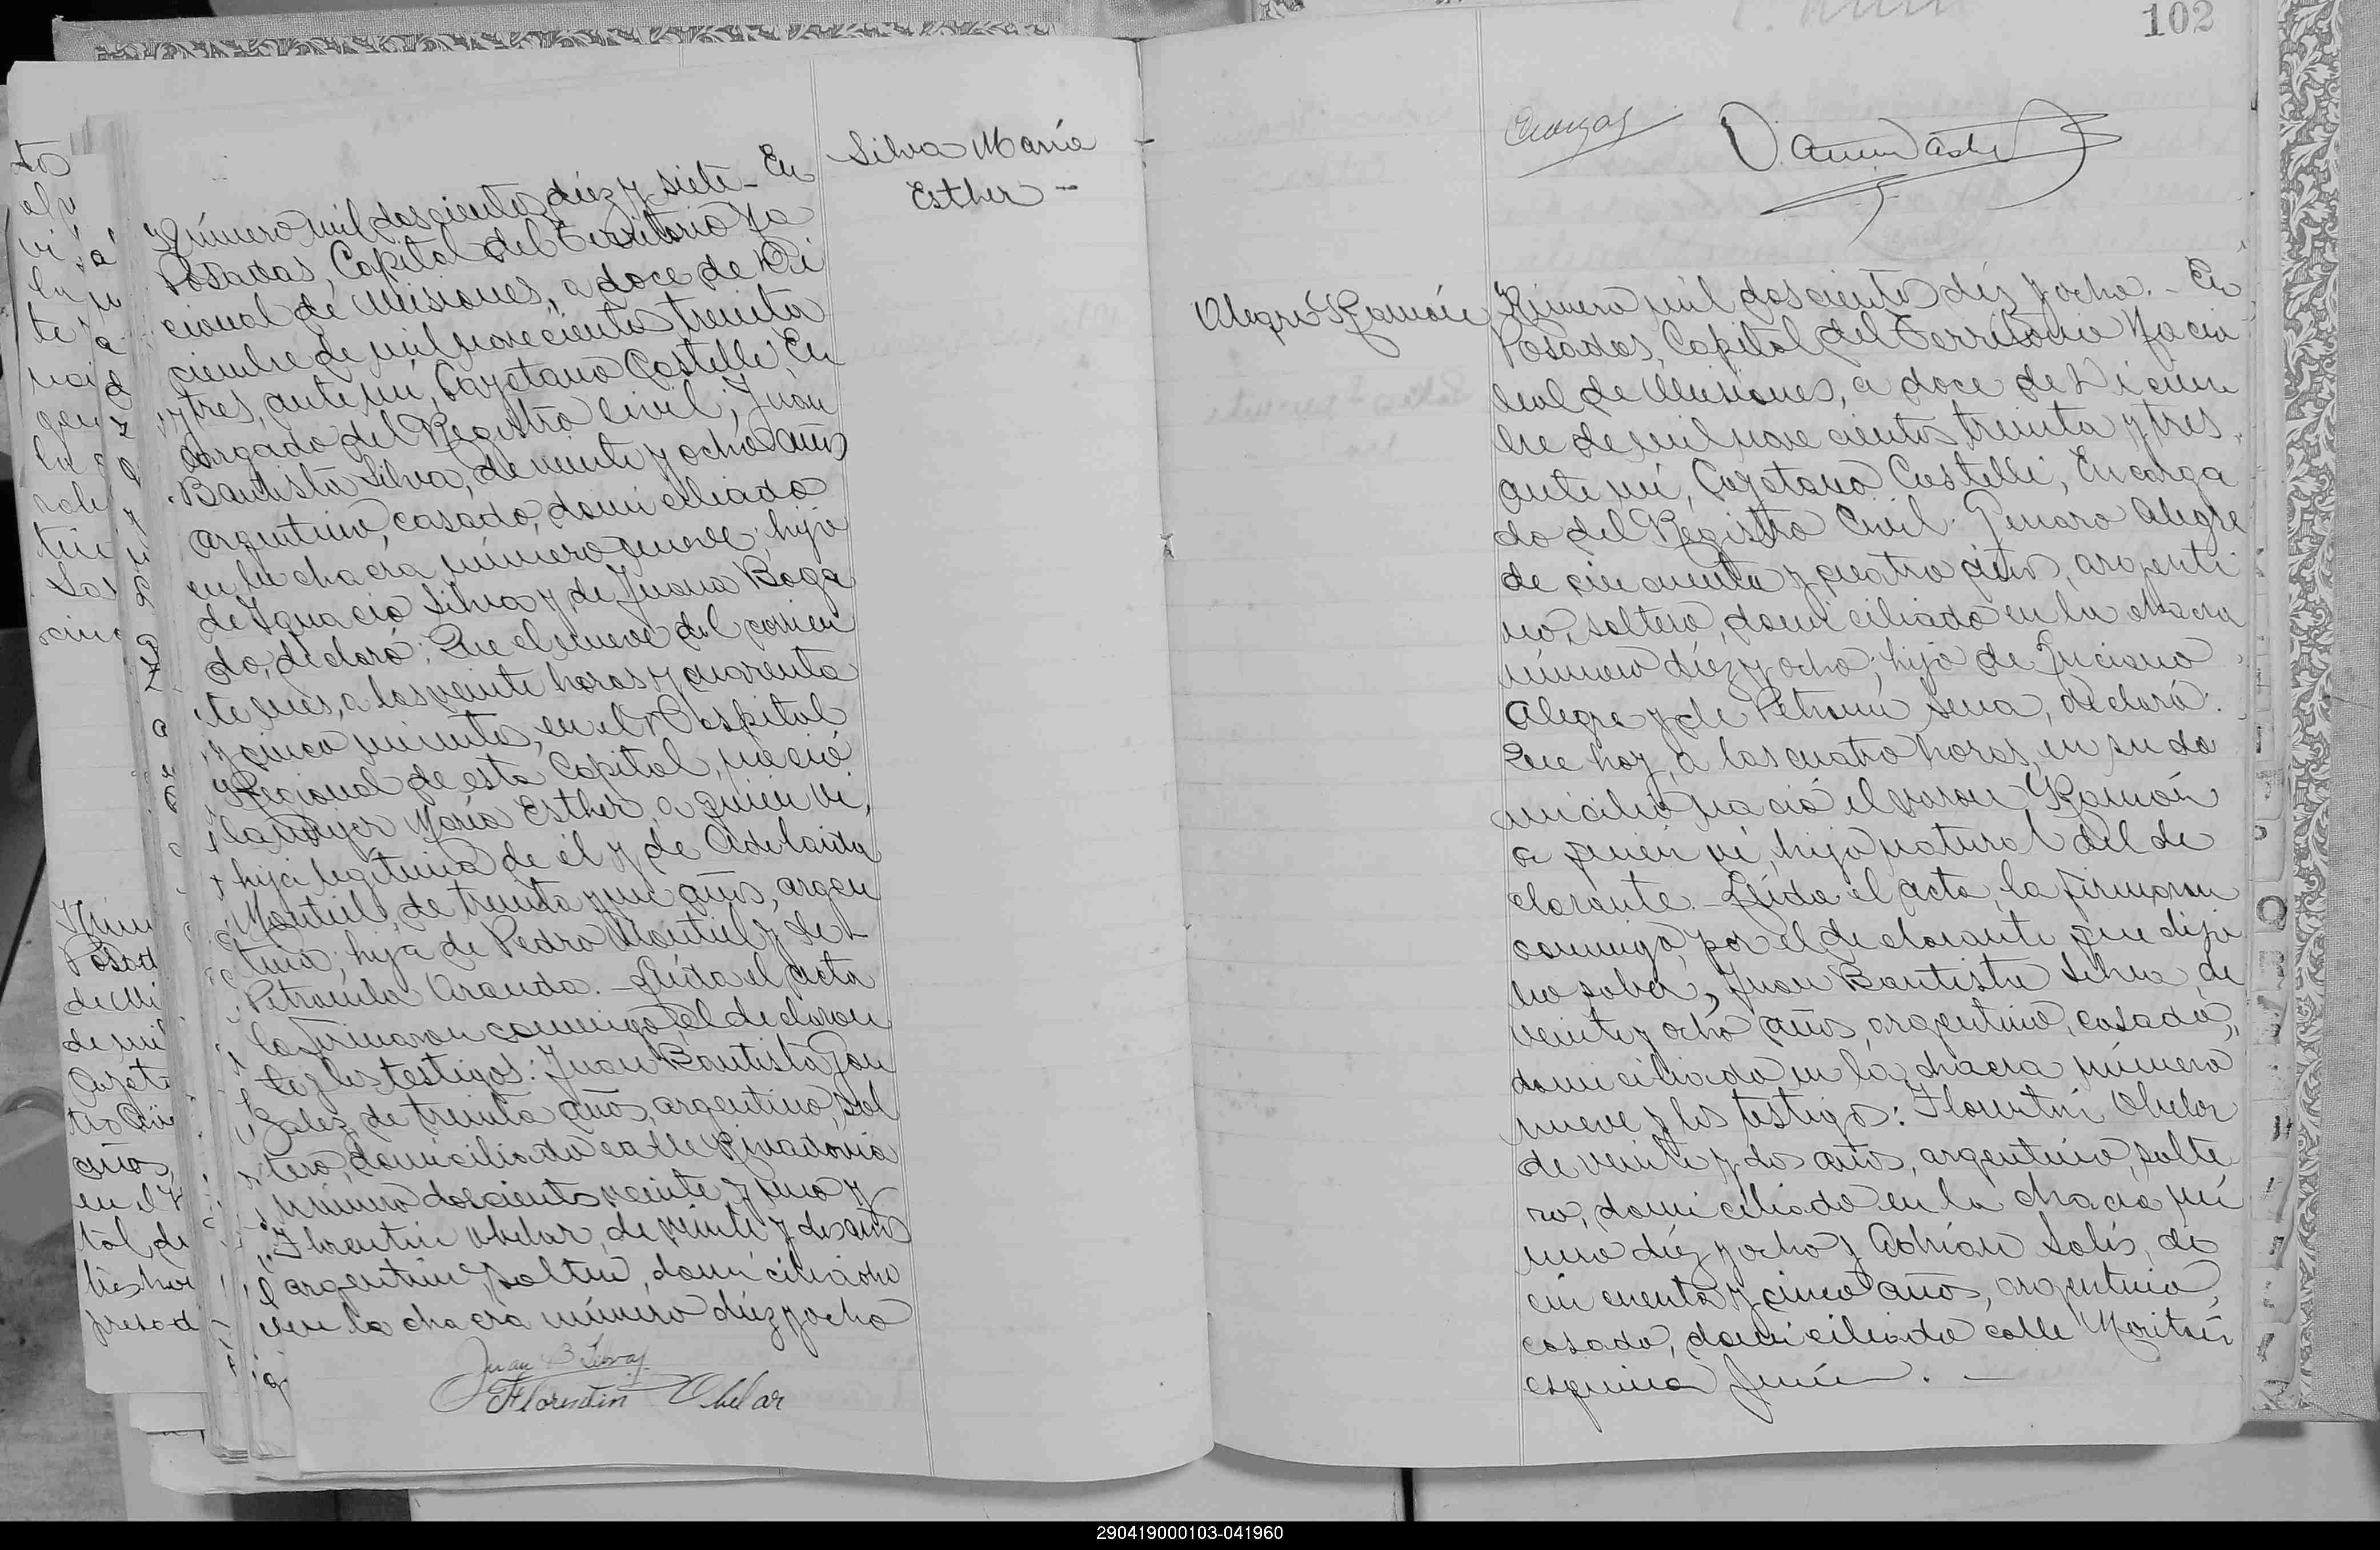 Silva María
Esther -
Número mil doscientos diéz y siete - En
Posadas, Capital del Territorio Na
cional de Misiones, a doce de Di
ciembre de mil novecientos treinta
y tres, ante mí, Cayetano Castelli, En
cargado del Registro Civil; Juan
Bautista Silva, de veinte y ocho años
argentino, casado, domiciliado
en la chacra número nueve, hijo
de Ignacio Silva y de Juana Boga
do, declaró: Que el nueve del corrien
te mes, a las veinte horas y cuarenta
y cinco minutos, en el Hospital
Regional de esta Capital, nació
la mujer María Esther, a quien ví,
hija legítima de él y de Adelaida
Montiel, de treinta y un años, argen
tina; hija de Pedro Montiel y de -
Petronila Aranda. - Leída el acta
la firmaron conmigo, el declaran
te y los testigos: Juan Bautista Gon
zalez, de treinta años, argentino, sol
tero, domiciliado calle Rivadavia
número doscientos veinte y uno y
Florentin Obelar, de veinte y dos años
argentino, soltero, domiciliado
en la chacra número diéz y ocho
Juan B Silva
Florentin Obelar
102
Alegre Ramón
Número mil doscientos diéz y ocho. - En
Posadas, Capital del Territorio Nacio
nal de Misiones, a doce de Diciem
bre de mil nove cientos treinta y tres,
ante mí, Cayetano Castelli, Encarga
do del Registro Civil: Genaro Alegre
de cincuenta y cuatro años, argenti
no, soltero, domiciliado en la chacra
número diéz y ocho; hijo de Luciano
Alegre y de Sena, declaró:
Que hoy, a las cuatro horas, en su do
micilio nació el varon Ramón
a quien ví, hijo natural del de
clarante. - Leída el acta, la firmaron
conmigo, por el declarante que dijo
no saber, Juan Bautista Silva, de
veinte y ocho años, argentino, casado,
domiciliado en la chacra número
nueve y los testigos: Florentin Obelar
de veinte y dos años, argentino, solte
ro, domiciliado en la chacra nú
mero diéz y ocho y Adrián Solís, de
cincuenta y cinco años, argentino,
casado, domiciliado calle
esquina Junín. -
290419000103-041960